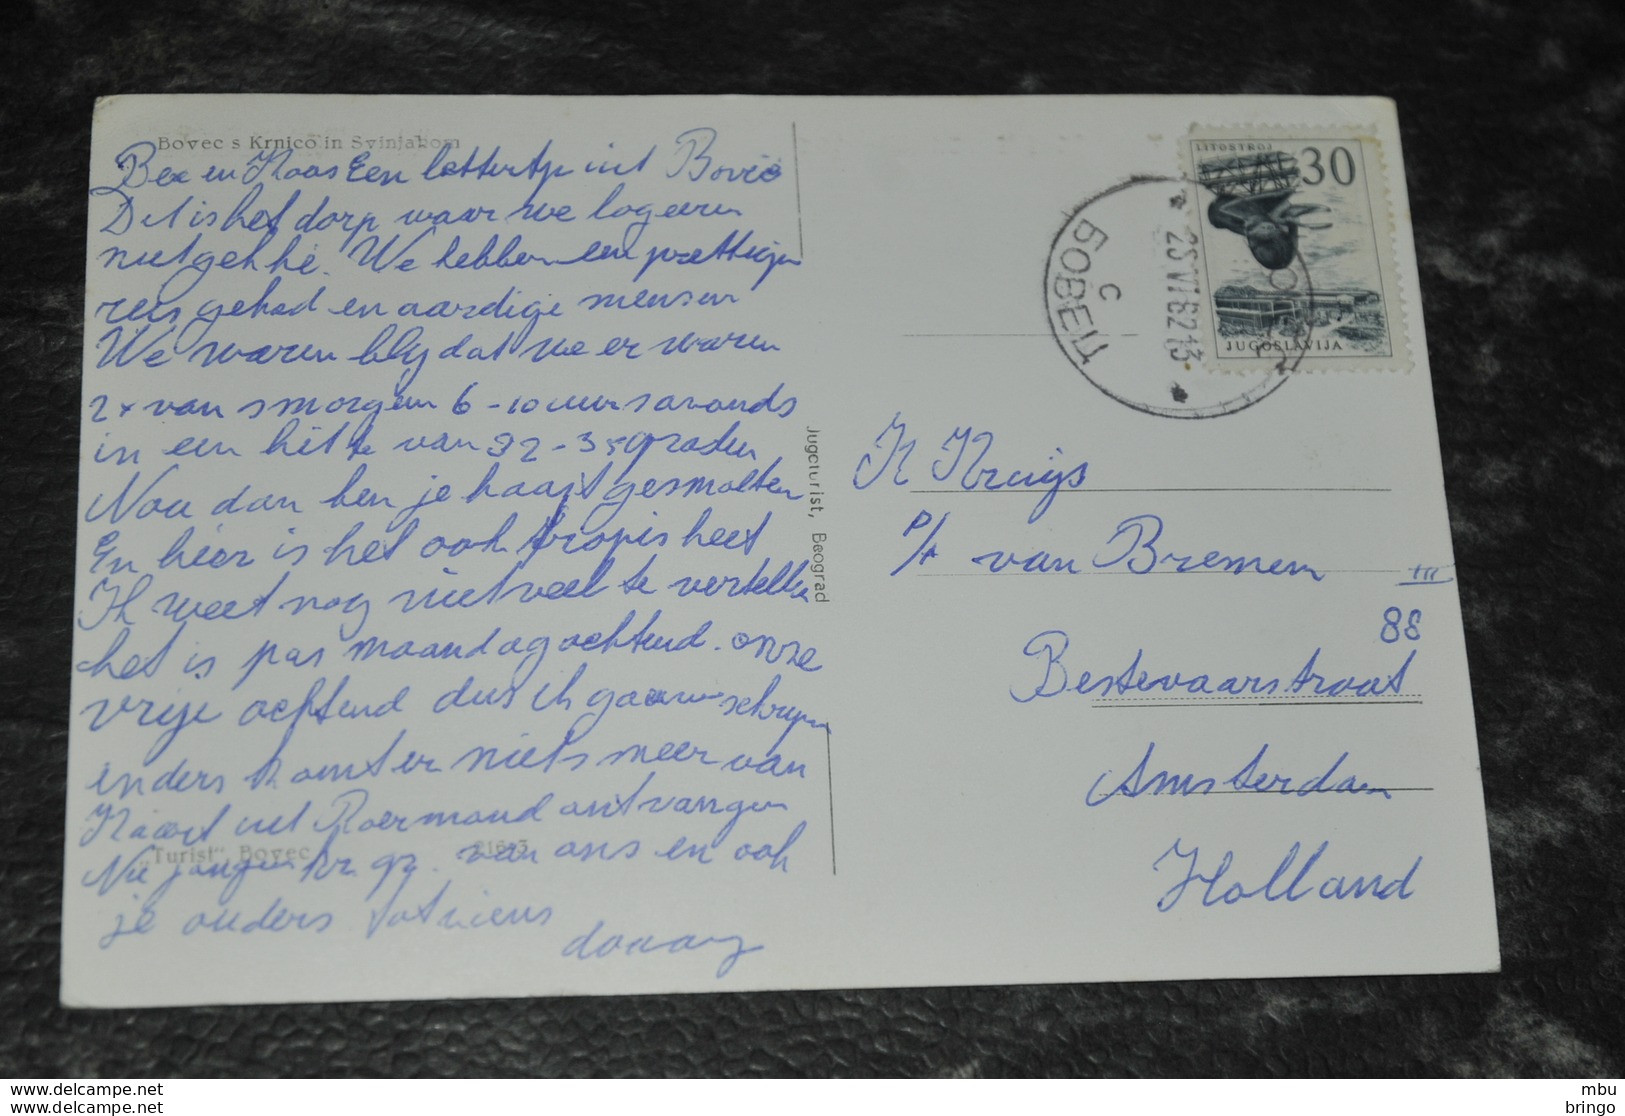 Bovec s Krnico in Svinjakom
Bee en Klaas Een lettertje uit Bovec
Dit is het dorp waar we logeeren
niet gek hé. We hebben een prettige
reis gehad en aardige mensen
We waren blij dat we er waren
2x van smorgens 6-10 uur savonds
in een hitte van 32-35 graden
Nou dan ben je haast gesmolten
En hier is het ook tropis heet
Ik weet nog niet veel te vertellen
het is pas maandagochtend. onze
vrije ochtend dus ik ga schrijven
anders komt er niets meer van
Kaart uit Roermond ontvangen
Nu jongen kr. gr. van ons en ook
je ouders tot ziens
"Turist" Bovec
Jugoturist, Beograd
LITOSTROJ
30
JUGOSLAVIJA
БОВЕЦ
K Kruijs
P/A van Bremen III
88
Bestevaarstraat
Amsterdam
Holland
www.delcampe.net
www.delcampe.net
mbu
bringo